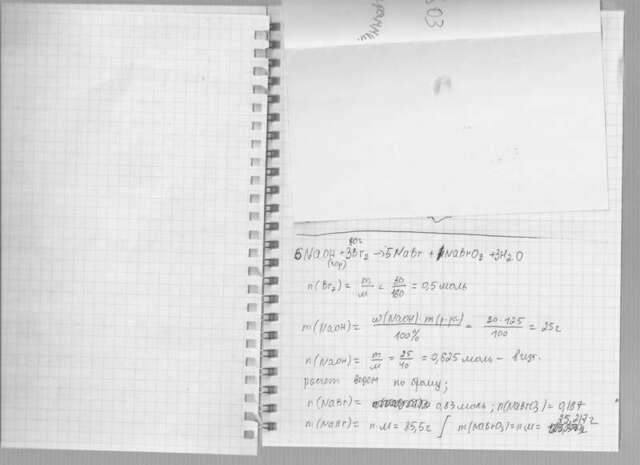 80г
6NaOH + 3Br2 → 5NaBr + NaBrO3 + 3H2O
(гор)
n(Br2) = m/M = 80/160 = 0,5 моль
m(NaOH) = ω(NaOH)·m(р-ра)/100% = 20·125/100 = 25г
n(NaOH) = m/M = 25/40 = 0,625 моль –
расчет ведем по брому;
n(NaBr) = 0,83 моль; n(NaBrO3) = 0,167
25,217г
m(NaBr) = n·M = 85,5г m(NaBrO3) = n·M =